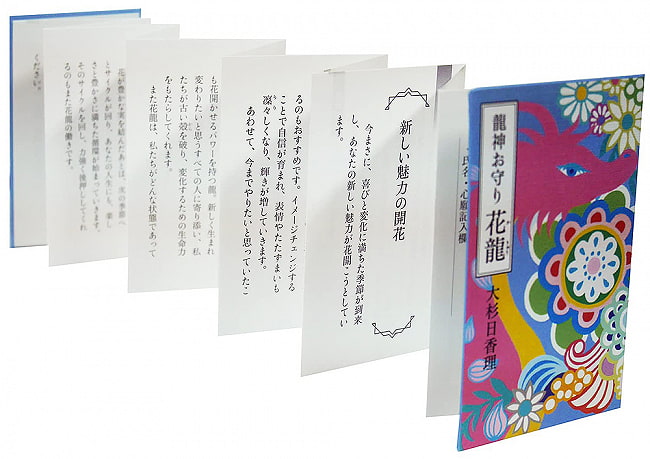 龍神お守り 花龍
大杉日香理
氏名・心願記入欄
新しい魅力の開花
今まさに、喜びと変化に満ちた季節が到来
し、あなたの新しい魅力が花開こうとしてい
ます。
るのもおすすめです。イメージチェンジする
ことで自信が育まれ、表情やたたずまいも
凜々しくなり、輝きが増していきます。
あわせて、今までやりたいと思っていたこ
も花開かせるパワーを持つ龍。新しく生まれ
変わりたいと思うすべての人に寄り添い、私
たちが古い殻を破り、変化するための生命力
をもたらしてくれます。
また花龍は、私たちがどんな状態であって
花が豊かな実を結んだあとは、次の季節へ
とサイクルが回り、あなたの人生にも、楽し
さと豊かさに満ちた循環が始まっていきます。
そのサイクルを回し、力強く後押ししてくれ
るのもまた花龍の働きです。
ください。